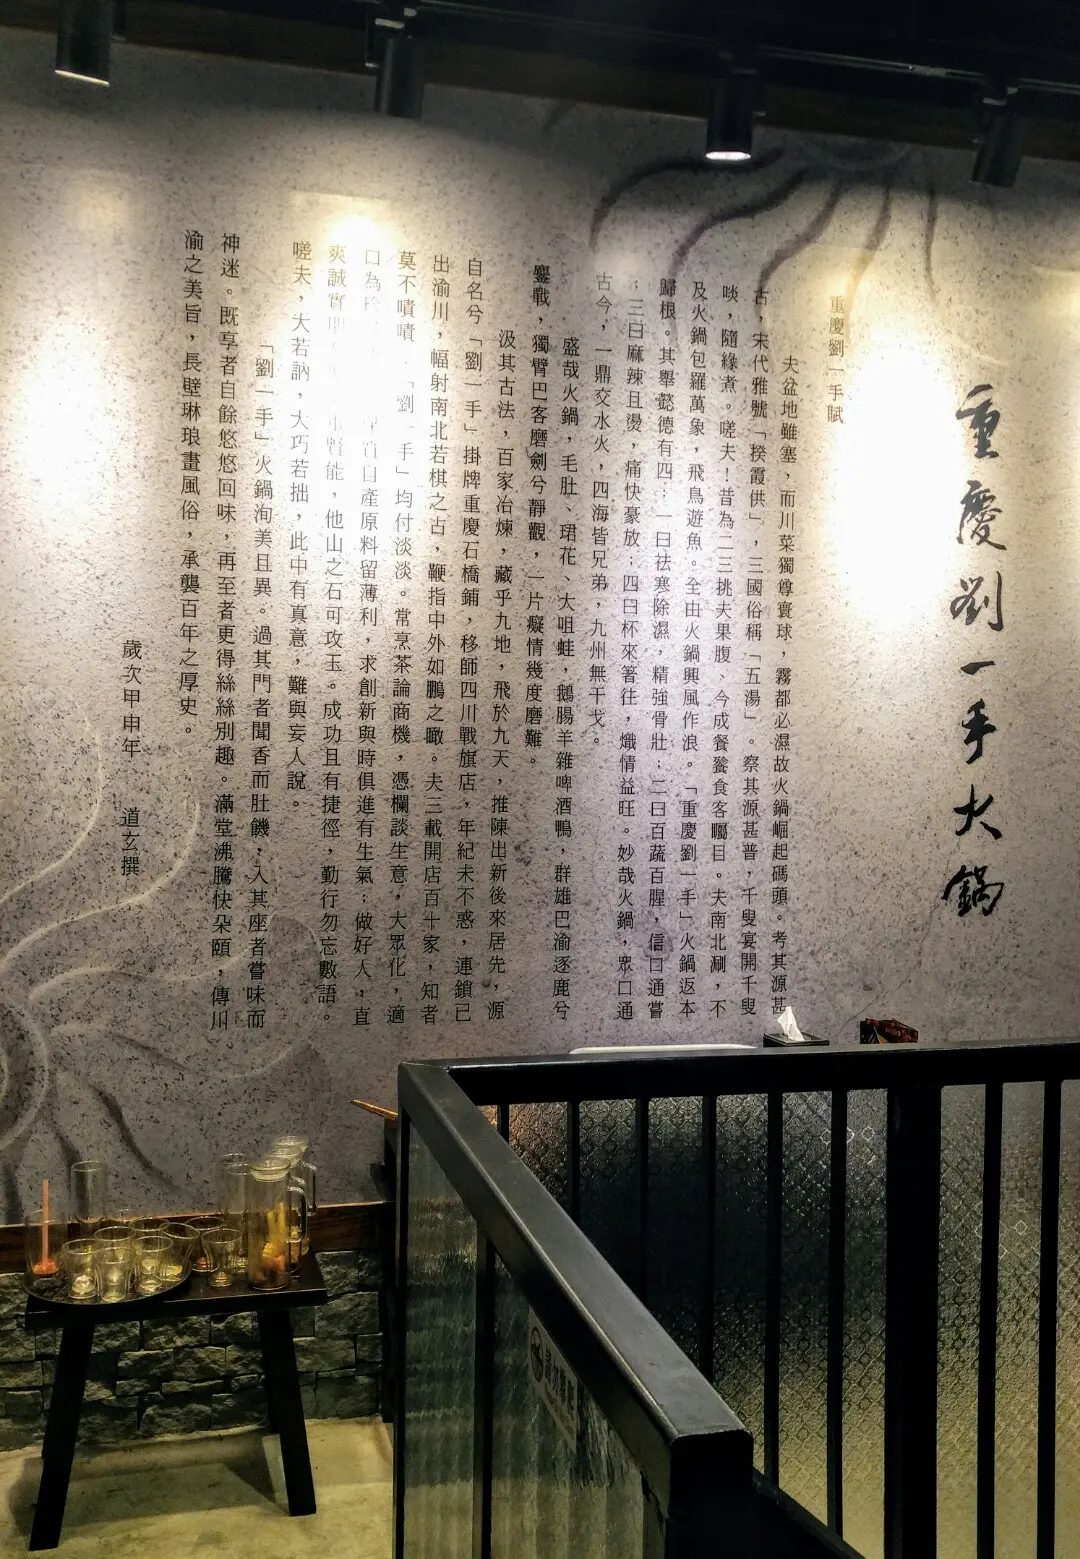 重慶劉一手火鍋
重慶劉一手賦
夫盆地雖塞，而川菜獨尊寰球，霧都必濕故火鍋崛起碼頭。考其源甚
古，宋代雅號「揆霞供」，三國俗稱「五湯」。察其源甚普，千叟宴開千叟
啖，隨緣煮。嗟夫！昔為二三挑夫果腹、今成餐餮食客矚目。夫南北涮，不
及火鍋包羅萬象，飛鳥遊魚。全由火鍋興風作浪。「重慶劉一手」火鍋返本
歸根。其舉懿德有四：一曰祛寒除濕，精強骨壯；二曰百蔬百腥，信口通嘗
；三曰麻辣且燙，痛快豪放；四曰杯來著往，熾情益旺。妙哉火鍋，眾口通
古今，一鼎交水火，四海皆兄弟，九州無干戈。
盛哉火鍋，毛肚、珺花、大咀蛙，鵝腸羊雜啤酒鴨，群雄巴渝逐鹿兮
鏖戰，獨臂巴客磨劍兮靜觀，一片癡情幾度磨難。
汲其古法，百家冶煉，藏乎九地，飛於九天，推陳出新後來居先，源
自名兮「劉一手」掛牌重慶石橋鋪，移師四川戰旗店，年紀未不惑，連鎖已
出渝川，幅射南北若棋之古，鞭指中外如鵬之瞰。夫三載開店百十家，知者
莫不嘖嘖「劉一手」均付淡淡。常烹茶論商機，憑欄談生意，大眾化，適
口為 自產原料留薄利，求創新與時俱進有生氣；做好人，直
爽誠實 重賢能，他山之石可攻玉。成功且有捷徑，勤行勿忘數語。
嗟夫，大若訥，大巧若拙，此中有真意，難與妄人說。
「劉一手」火鍋洵美且異。過其門者聞香而肚饑，入其座者嘗味而
神迷。既享者自餘悠悠回味，再至者更得絲絲別趣。滿堂沸騰快朵頤，傳川
渝之美旨，長壁琳琅畫風俗，承襲百年之厚史。
歲次甲申年 道玄撰